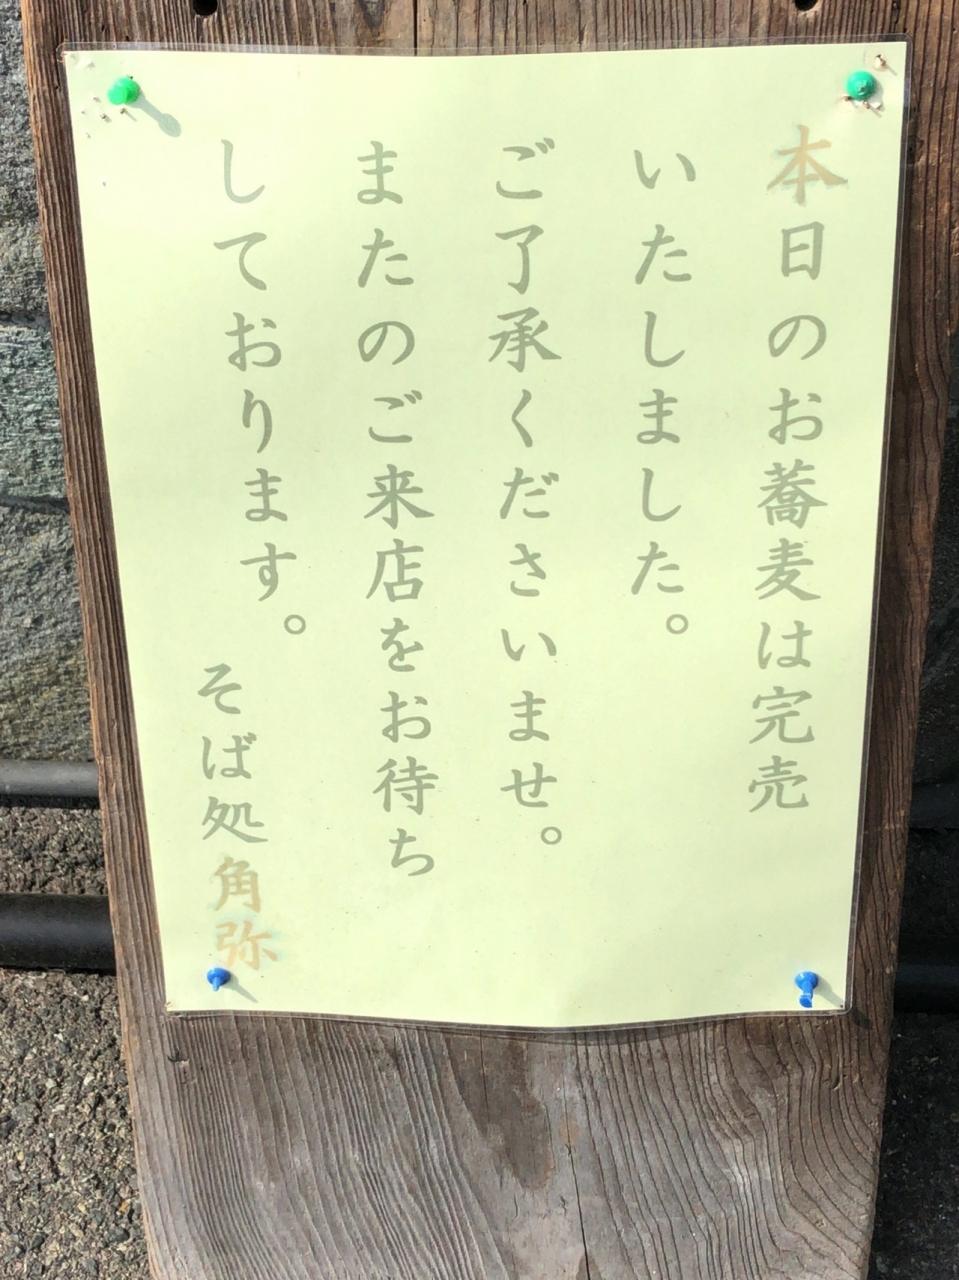 本日のお蕎麦は完売
いたしました。
ご了承くださいませ。
またのご来店をお待ち
しております。
そば処角弥